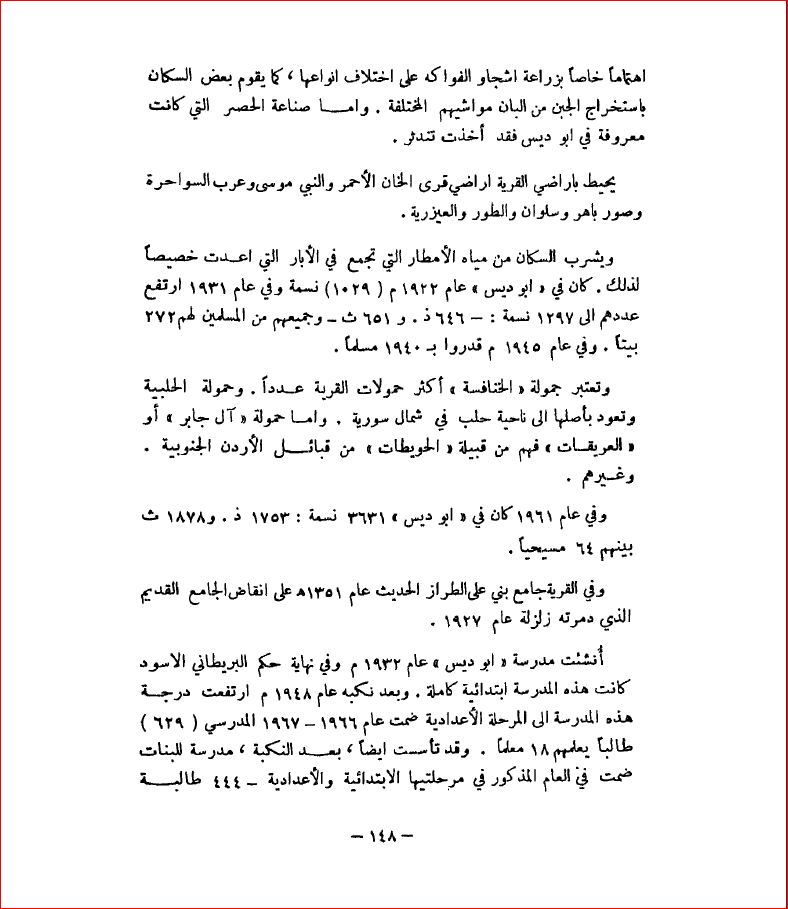 اهتماماً خاصاً بزراعة اشجاو الفواكه على اختلاف انواعها ، كما يقوم بعض السكان
باستخراج الجبن من البان مواشيهم المختلفة . وامــا صناعة الحصر التي كانت
معروفة في ابو ديس فقد أخذت تندثر .
يحيط باراضي القرية اراضي قرى الخان الأحمر والنبي موسى وعرب السواحرة
وصور باهر وسلوان والطور والعيزرية .
ويشرب السكان من مياه الأمطار التي تجمع في الأبار التي اعـدت خصيصاً
لذلك . كان في « ابو ديس » عام ١٩٢٢ م ( ١٠٢٩ ) نسمة وفي عام ١٩٣١ ارتفع
عددهم الى ١٢٩٧ نسمة : – ٦٤٦ ذ . و ٦٥١ ث – وجميعهم من المسلمين لهم ٢٧٢
بيتاً . وفي عام ١٩٤٥ م قدروا بـ ١٩٤٠ مسلماً .
وتعتبر حمولة « الخنافسة » أكثر حمولات القرية عــدداً . وحمولة الحلبية
وتعود بأصلها الى ناحية حلب في شمال سورية . وامـا حمولة « آل جابر » أو
« العريقـات » فهم من قبيلة « الحويطات » من قبائــل الأردن الجنوبية .
وغـيرهم .
وفي عام ١٩٦١ كان في « ابو ديس » ٣٦٣١ نسمة : ١٧٥٣ ذ . و١٨٧٨ ث
بينهم ٦٤ مسيحياً .
وفي القرية جامع بني على الطراز الحديث عام ١٣٥١ه على انقاض الجامع القديم
الذي دمرته زلزلة عام ١٩٢٧ .
أُنشئت مدرسة « ابو ديس » عام ١٩٣٢ م وفي نهاية حكم البريطاني الاسود
كانت هذه المدرسة ابتدائية كاملة . وبعد نكبه عام ١٩٤٨ م ارتفعت درجــة
هذه المدرسة الى المرحلة الأعدادية ضمت عام ١٩٦٦ – ١٩٦٧ المدرسي ( ٦٢٩ )
طالباً يعلمهم ١٨ معلماً . وقد تأسست ايضاً ، بعــد النكبة ، مدرسة للبنات
ضمت في العام المذكور في مرحلتيها الابتدائية والأعدادية – ٤٤٤ طالبــة
– ١٤٨ –